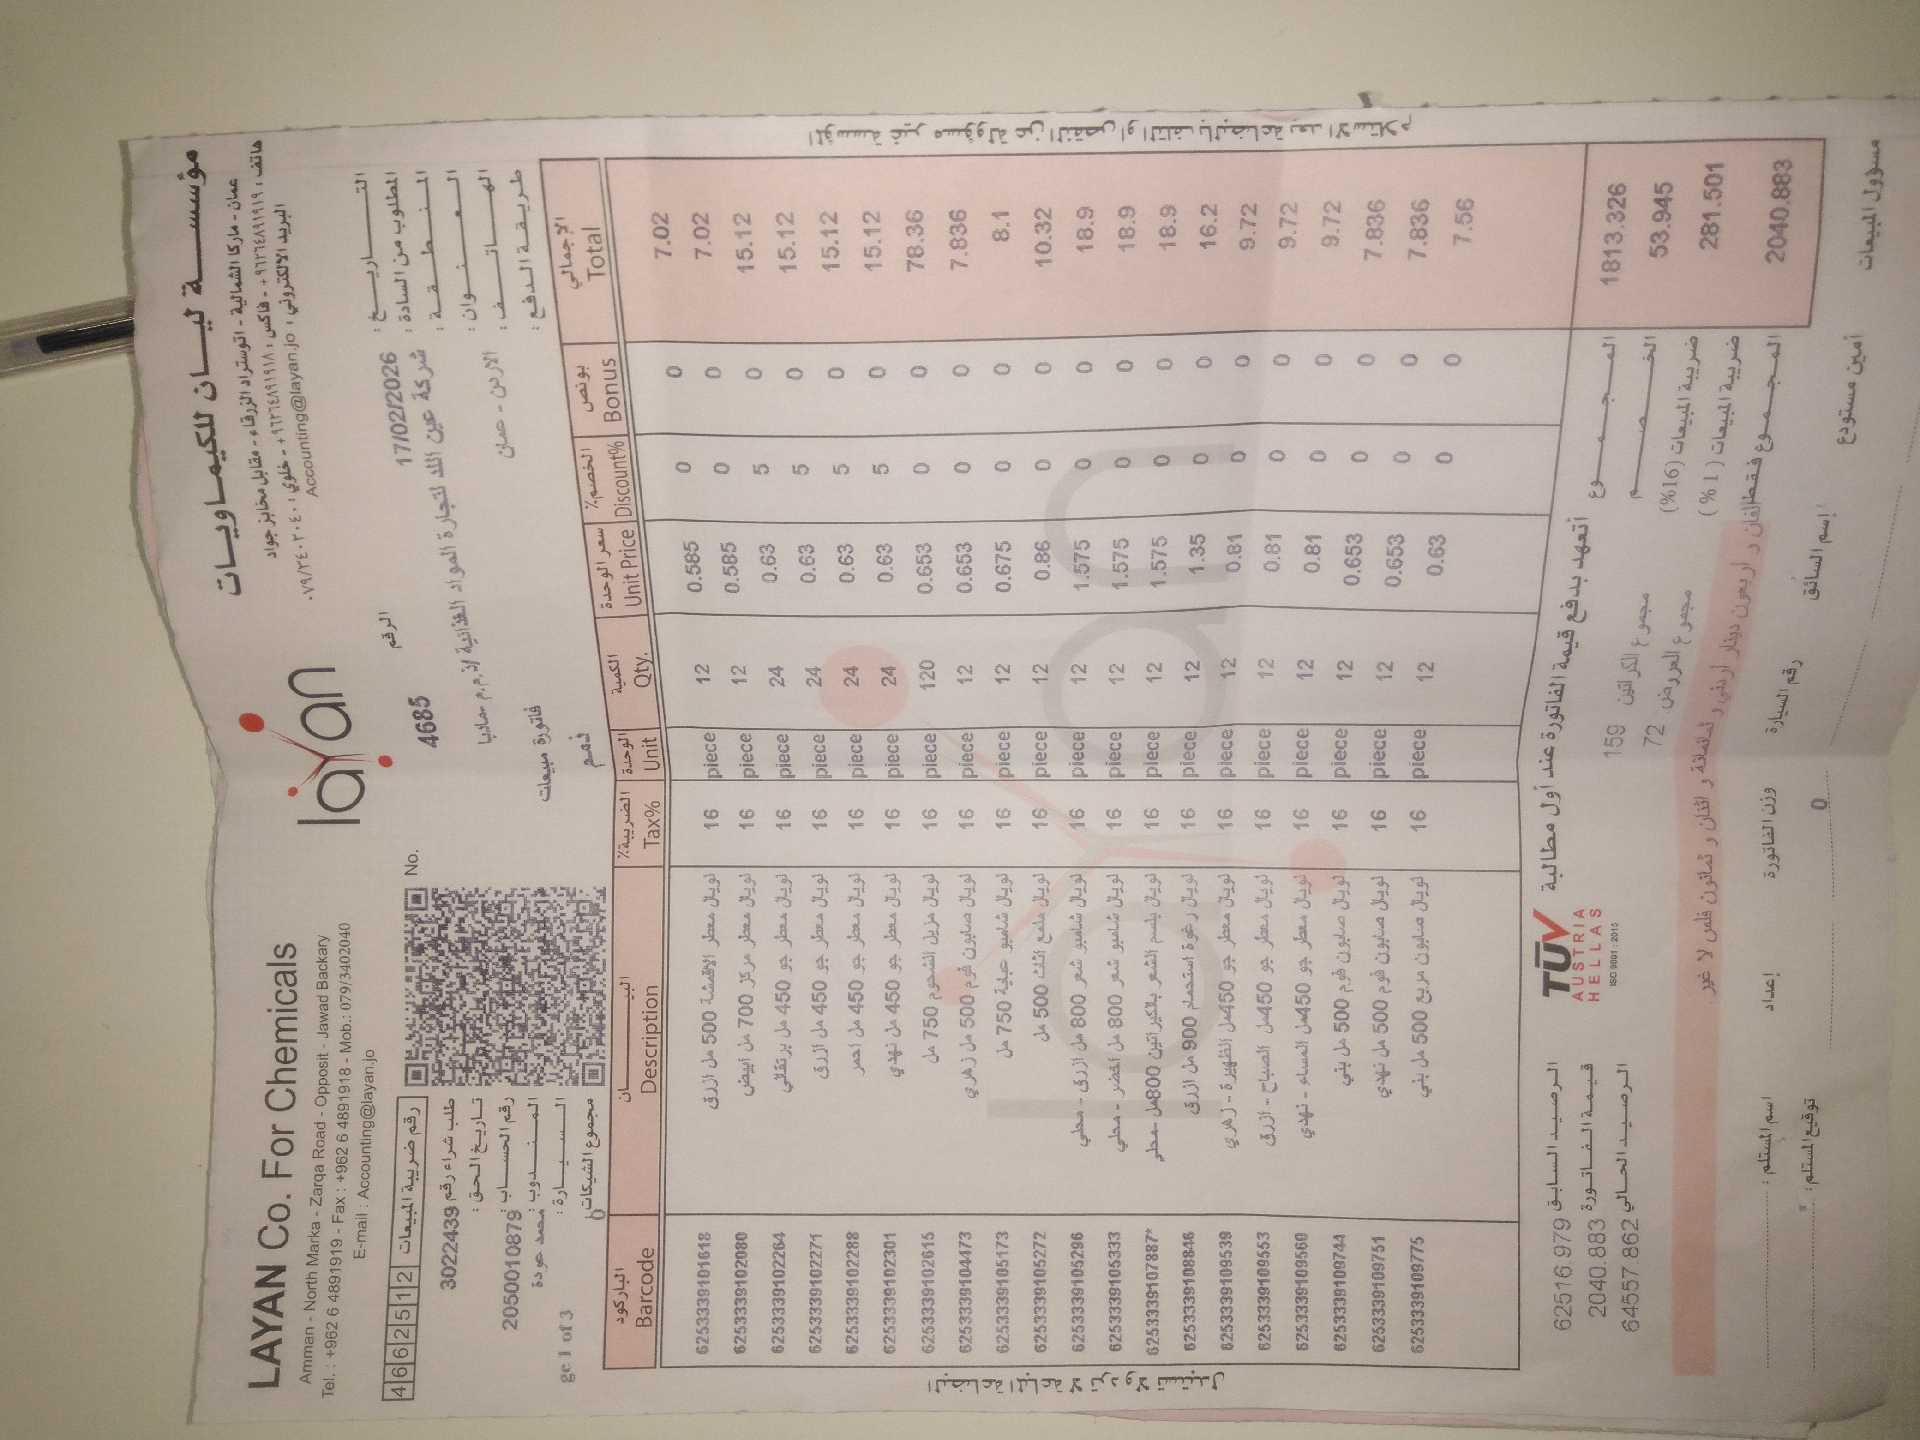 LAYAN Co. For Chemicals
Amman - North Marka - Zarqa Road - Opposit - Jawad Backary
Tel. : +962 6 4891919 - Fax : +962 6 4891918 - Mob.: 079/3402040
E-mail : Accounting@layan.jo
layan
مؤسسة ليان للكيماويات
عمان - ماركا الشمالية - اتوستراد الزرقاء - مقابل مخابز جواد
هاتف : ٩٦٢٦٤٨٩١٩١٩+ - فاكس : ٩٦٢٦٤٨٩١٩١٨+ - خلوي : ٠٧٩/٣٤٠٢٠٤٠
البريد الالكتروني : Accounting@layan.jo
4662512 رقم ضريبة المبيعات
No. 4685 الرقم
طلب شراء رقم 3022439
تاريخ الحق :
رقم الحساب : 20500010879
المندوب : محمد عودة
السيارة :
مجموع الشيكات : 0
ge 1 of 3
التاريخ : 17/02/2026
المطلوب من السادة : شركة عين اللد لتجارة المواد الغذائية ذ.م.م -مادبا
المنطقة :
العنوان : الاردن - عمان
الهاتف :
طريقة الدفع :
فاتورة مبيعات
ذمم
الباركود البيان الضريبة% الوحدة الكمية سعر الوحدة الخصم% بونص الاجمالي
Barcode Description Tax% Unit Qty. Unit Price Discount% Bonus Total
6253339101618 لويال معطر الاقمشة 500 مل ازرق 16 piece 12 0.585 0 0 7.02
6253339102080 لويال معطر مركز 700 مل ابيض 16 piece 12 0.585 0 0 7.02
6253339102264 لويال معطر جو 450 مل برتقالي 16 piece 24 0.63 5 0 15.12
6253339102271 لويال معطر جو 450 مل ازرق 16 piece 24 0.63 5 0 15.12
6253339102288 لويال معطر جو 450 مل احمر 16 piece 24 0.63 5 0 15.12
6253339102301 لويال معطر جو 450 مل نهدي 16 piece 24 0.63 5 0 15.12
6253339102615 لويال مزيل الشحوم 750 مل 16 piece 120 0.653 0 0 78.36
6253339104473 لويال صابون فوم 500 مل زهري 16 piece 12 0.653 0 0 7.836
6253339105173 لويال شامبو عباية 750 مل 16 piece 12 0.675 0 0 8.1
6253339105272 لويال ملمع اثاث 500 مل 16 piece 12 0.86 0 0 10.32
6253339105296 لويال شامبو شعر 800 مل ازرق - محلي 16 piece 12 1.575 0 0 18.9
6253339105333 لويال شامبو شعر 800 مل اخضر - محلي 16 piece 12 1.575 0 0 18.9
6253339107887* لويال بلسم الشعر بالكيراتين 800مل -محلي 16 piece 12 1.575 0 0 18.9
6253339108846 لويال رغوة استحمام 900 مل ازرق 16 piece 12 1.35 0 0 16.2
6253339109539 لويال معطر جو 450مل الظهيرة - زهري 16 piece 12 0.81 0 0 9.72
6253339109553 لويال معطر جو 450مل الصباح - ازرق 16 piece 12 0.81 0 0 9.72
6253339109560 لويال معطر جو 450مل المساء - نهدي 16 piece 12 0.81 0 0 9.72
6253339109744 لويال صابون فوم 500 مل بني 16 piece 12 0.653 0 0 7.836
6253339109751 لويال صابون فوم 500 مل نهدي 16 piece 12 0.653 0 0 7.836
6253339109775 لويال صابون مربع 500 مل بني 16 piece 12 0.63 0 0 7.56
البضاعة المباعة لا ترد ولا تستبدل
المؤسسة غير مسؤولة عن النقص او التلف بالبضاعة بعد الاستلام
الرصيد السابق 62516.979
قيمة الفاتورة 2040.883
الرصيد الحالي 64557.862
TÜV
AUSTRIA
HELLAS
ISO 9001 : 2015
أتعهد بدفع قيمة الفاتورة عند أول مطالبة
مجموع الكراتين 159
مجموع العروض 72
المجموع 1813.326
الخصم 53.945
ضريبة المبيعات (16%) 281.501
ضريبة المبيعات (1%)
المجموع 2040.883
فقط الفان و اربعون دينار اردني و ثمانمائة و اثنان و ثمانون فلس لا غير
اسم المستلم :
توقيع المستلم :
إعداد
وزن الفاتورة
0
رقم السيارة
إسم السائق
أمين مستودع
مسؤول المبيعات